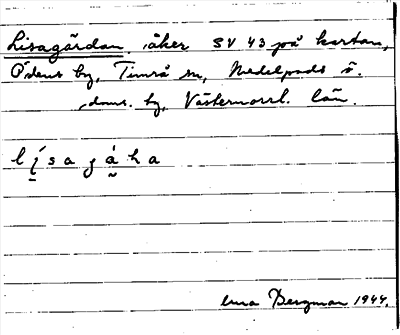 Lisagårdan, åker SV 43 på kartan,
Ödens by, Timrå sn, Medelpads ö.
doms. by, Västernorrl. län.
l í s a g á h a
Erna Bergman 1944.